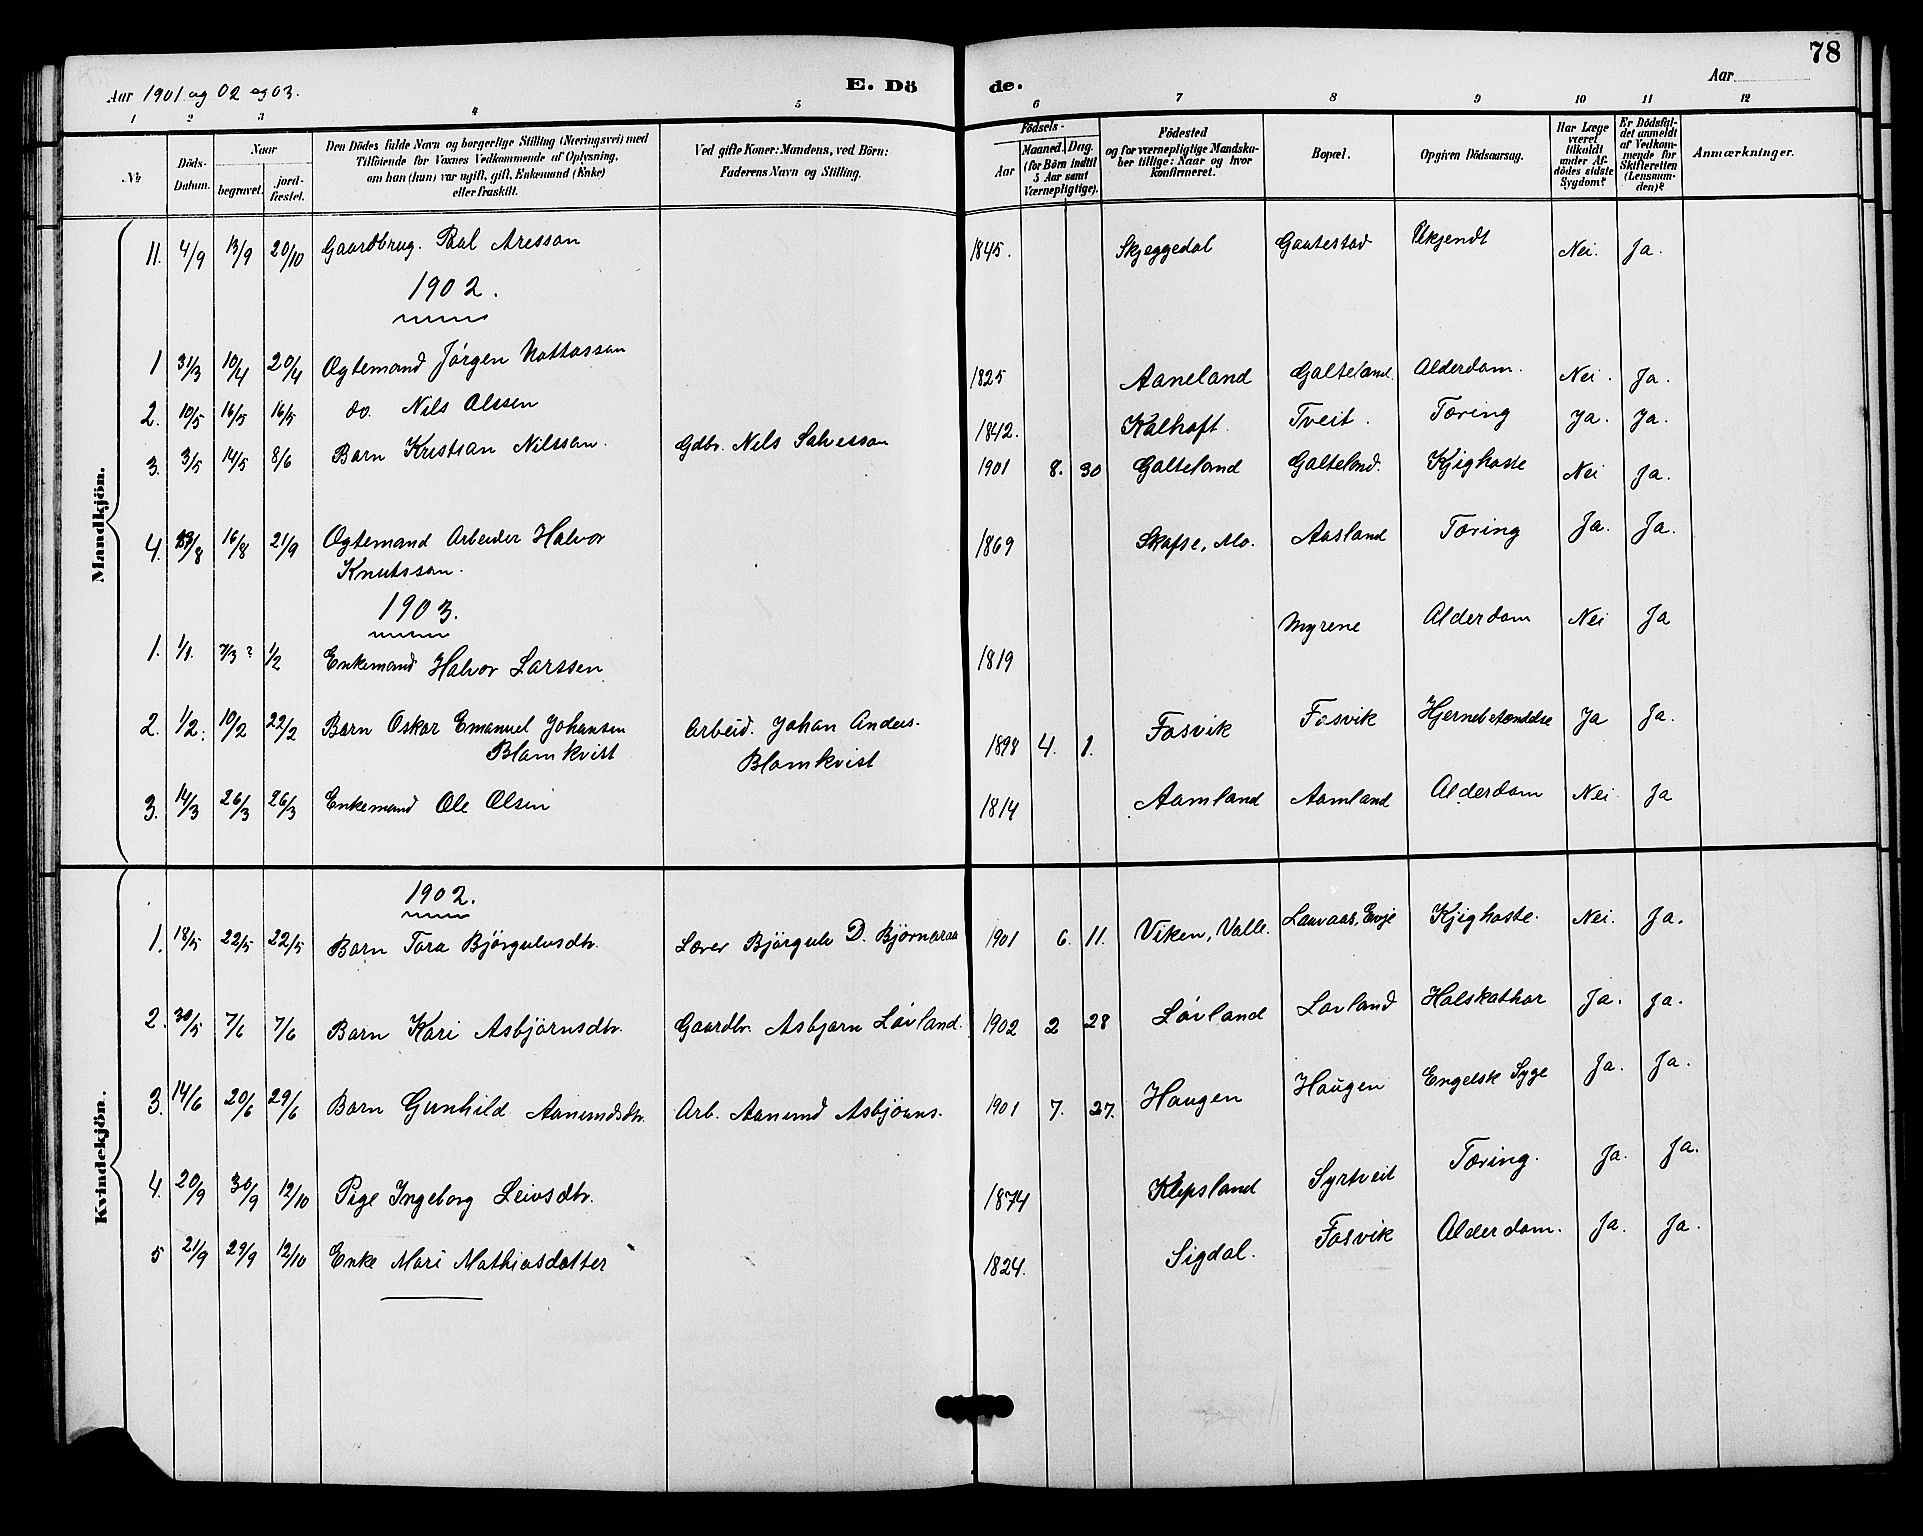 78
Aar 1901 og 02 og 03.
E. Dö de.
Aar
1 2 3 4 5 6 7 8 9 10 11 12
№
Döds-Datum.
Naar begravet. jordfæstet.
Den Dödes fulde Navn og borgerlige Stilling (Næringsvei) med
Tilföiende for Voxnes Vedkommende af Oplysning,
om han (hun) var ugift, gift, Enkemand (Enke)
eller fraskilt.
Ved gifte Koner: Mandens, ved Börn:
Faderens Navn og Stilling.
Födsels-
Aar Maaned. Dag. (for Börn indtil 5 Aar samt Værnepligtige).
Födested
og for værnepligtige Mandskaber tillige: Naar og hvor konfirmeret.
Bopæl.
Opgiven Dödsaarsag.
Har Læge været tilkaldt under Afdödes sidste Sygdom?
Er Dödsfaldet anmeldt af Vedkommende for Skifteretten (Lensmanden)?
Anmærkninger.
Mandkjön.
11. 4/9 13/9 20/10 Gaardbrug. Paal Aresson 1845. Skjeggedal Gautestad Ukjendt Nei. Ja.
1902.
1 31/3 10/4 20/4 Ægtemand Jörgen Nottosson 1825 Aaneland Galteland. Alderdom. Nei. Ja.
2. 10/5 16/5 16/5 do. Nils Olssen 1842. Kalhoft. Tveit. Tæring Ja. Ja.
3. 3/5 14/5 8/6 Barn Kristian Nilsson. Gdbr. Nels Salvesson 1901 8. 30 Galteland Galteland. Kjighoste Nei Ja.
4. /8 16/8 21/9 Ægtemand Arbeider Halvor
Knutsson. 1869 Skafse, Mo. Aasland Tæring Ja. Ja.
1903.
1. 1/1. 7/3? 1/2 Enkemand Halvor Larssen 1819 Myrene Alderdom Nei Ja
2. 1/2. 10/2 22/2 Barn Oskar Emanuel Johansen
Blomkvist Arbeid. Johan Anders.
Blomkvist 1898 4. 1. Fosvik Fosvik Hjernebetændelse Ja Ja.
3. 14/3 26/3 26/3 Enkemand Ole Olsen 1814 Aamland Aamland Alderdom Nei Ja
Kvindekjön.
1902.
1. 18/5 22/5 22/5 Barn Tora Björgulvsdtr. Lærer Björgulv D. Björnaraa 1901 6. 11. Viken, Valle. Lauvaas, Evje Kjighoste. Nei. Ja.
2. 30/5 7/6 7/6 Barn Kari Asbjörnsdtr. Gaardbr. Asbjørn Lövland. 1902 2 28 Lövland Lovland Halskathar Ja. Ja.
3. 14/6 20/6 29/6 Barn Gunhild Aanundsdtr. Arb. Aanund Asbjörns. 1901 7. 27. Haugen Haugen Engelsk Syge Ja. Ja.
4. 20/9 30/9 12/10 Pige Ingeborg Leivsdtr. 1874 Klepsland Syrtveit Tæring. Ja. Ja.
5 21/9 29/9 12/10 Enke Mari Mathiasdotter 1824. Sigdal. Fosvik Alderdom. Ja. Ja.